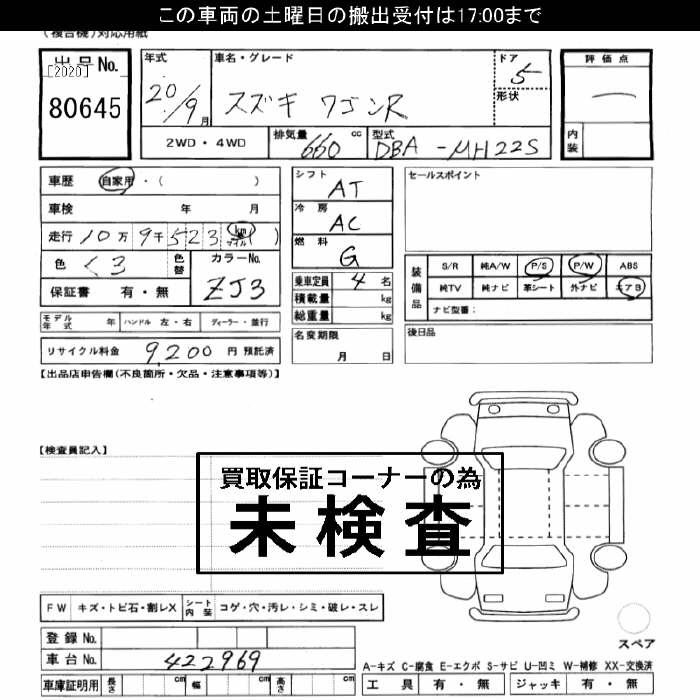 この車両の土曜日の搬出受付は17:00まで
(複合機)対応用紙
出品No.
[2020]
80645
年式
20/9月
車名・グレード
スズキ ワゴンR
ドア
5
形状
評価点
内装
2WD・4WD
排気量 660 cc
型式 DBA-MH22S
車歴 自家用・( )
車検 年 月
走行 10万9千523 km マイル ( )
色 くろ 色替
カラーNo.
ZJ3
保証書 有・無
シフト
AT
冷房
AC
燃料
G
乗車定員 4名
積載量 kg
総重量 kg
セールスポイント
装備品
S/R 純A/W P/S P/W ABS
純TV 純ナビ 革シート 外ナビ エアB
ナビ型番:
モデル年式 年 ハンドル 左・右 ディーラー・並行
名変期限
月 日
後日品
リサイクル料金 9,200 円 預託済
【出品店申告欄(不良箇所・欠品・注意事項等)】
【検査員記入】
買取保証コーナーの為
未検査
FW キズ・トビ石・割レX シート内装 コゲ・穴・汚レ・シミ・破レ・スレ
登録No.
車台No. 422969
車庫証明用 長さ cm 幅 cm 高さ cm
スペア
A-キズ C-腐食 E-エクボ S-サビ U-凹ミ W-補修 XX-交換済
工具 有・無 ジャッキ 有・無